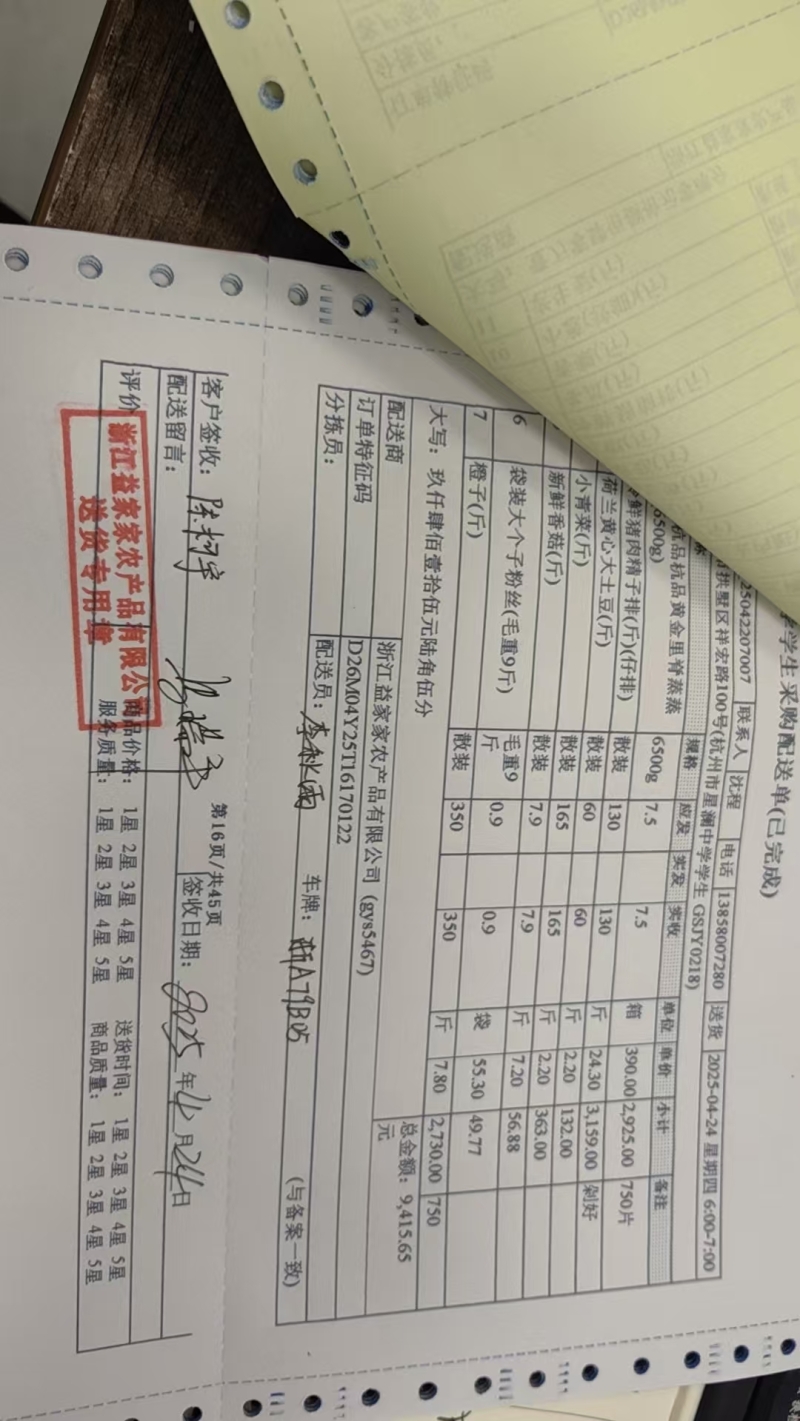 学生采购配送单(已完成)
25042207007 联系人 沈程 电话 13858007280 送货 2025-04-24 星期四 6:00-7:00
拱墅区祥宏路100号(杭州市星澜中学学生 GSJY0218)
规格 应发 实发 实收 单位 单价 小计 备注
杭品杭品黄金里脊蒸蒸
6500g) 6500g 7.5 7.5 箱 390.00 2,925.00 750片
鲜猪肉精子排(斤)(仔排) 散装 130 130 斤 24.30 3,159.00 剁好
荷兰黄心大土豆(斤) 散装 60 60 斤 2.20 132.00
小青菜(斤) 散装 165 165 斤 2.20 363.00
新鲜香菇(斤) 散装 7.9 7.9 斤 7.20 56.88
6 袋装大个子粉丝(毛重9斤) 毛重9斤 0.9 0.9 袋 55.30 49.77
7 橙子(斤) 散装 350 350 斤 7.80 2,730.00 750
大写：玖仟肆佰壹拾伍元陆角伍分 总金额：9,415.65元
配送商 浙江益家家农产品有限公司 (gys5467)
订单特征码 D26M04Y25T16170122
分拣员： 配送员： 车牌：浙A79B05 (与备案一致)
第16页/共45页
客户签收：陈柯宇 签收日期：2025年4月24日
配送留言：
评价 商品价格：1星 2星 3星 4星 5星 送货时间：1星 2星 3星 4星 5星
服务质量：1星 2星 3星 4星 5星 商品质量：1星 2星 3星 4星 5星
浙江益家家农产品有限公司
送货专用章